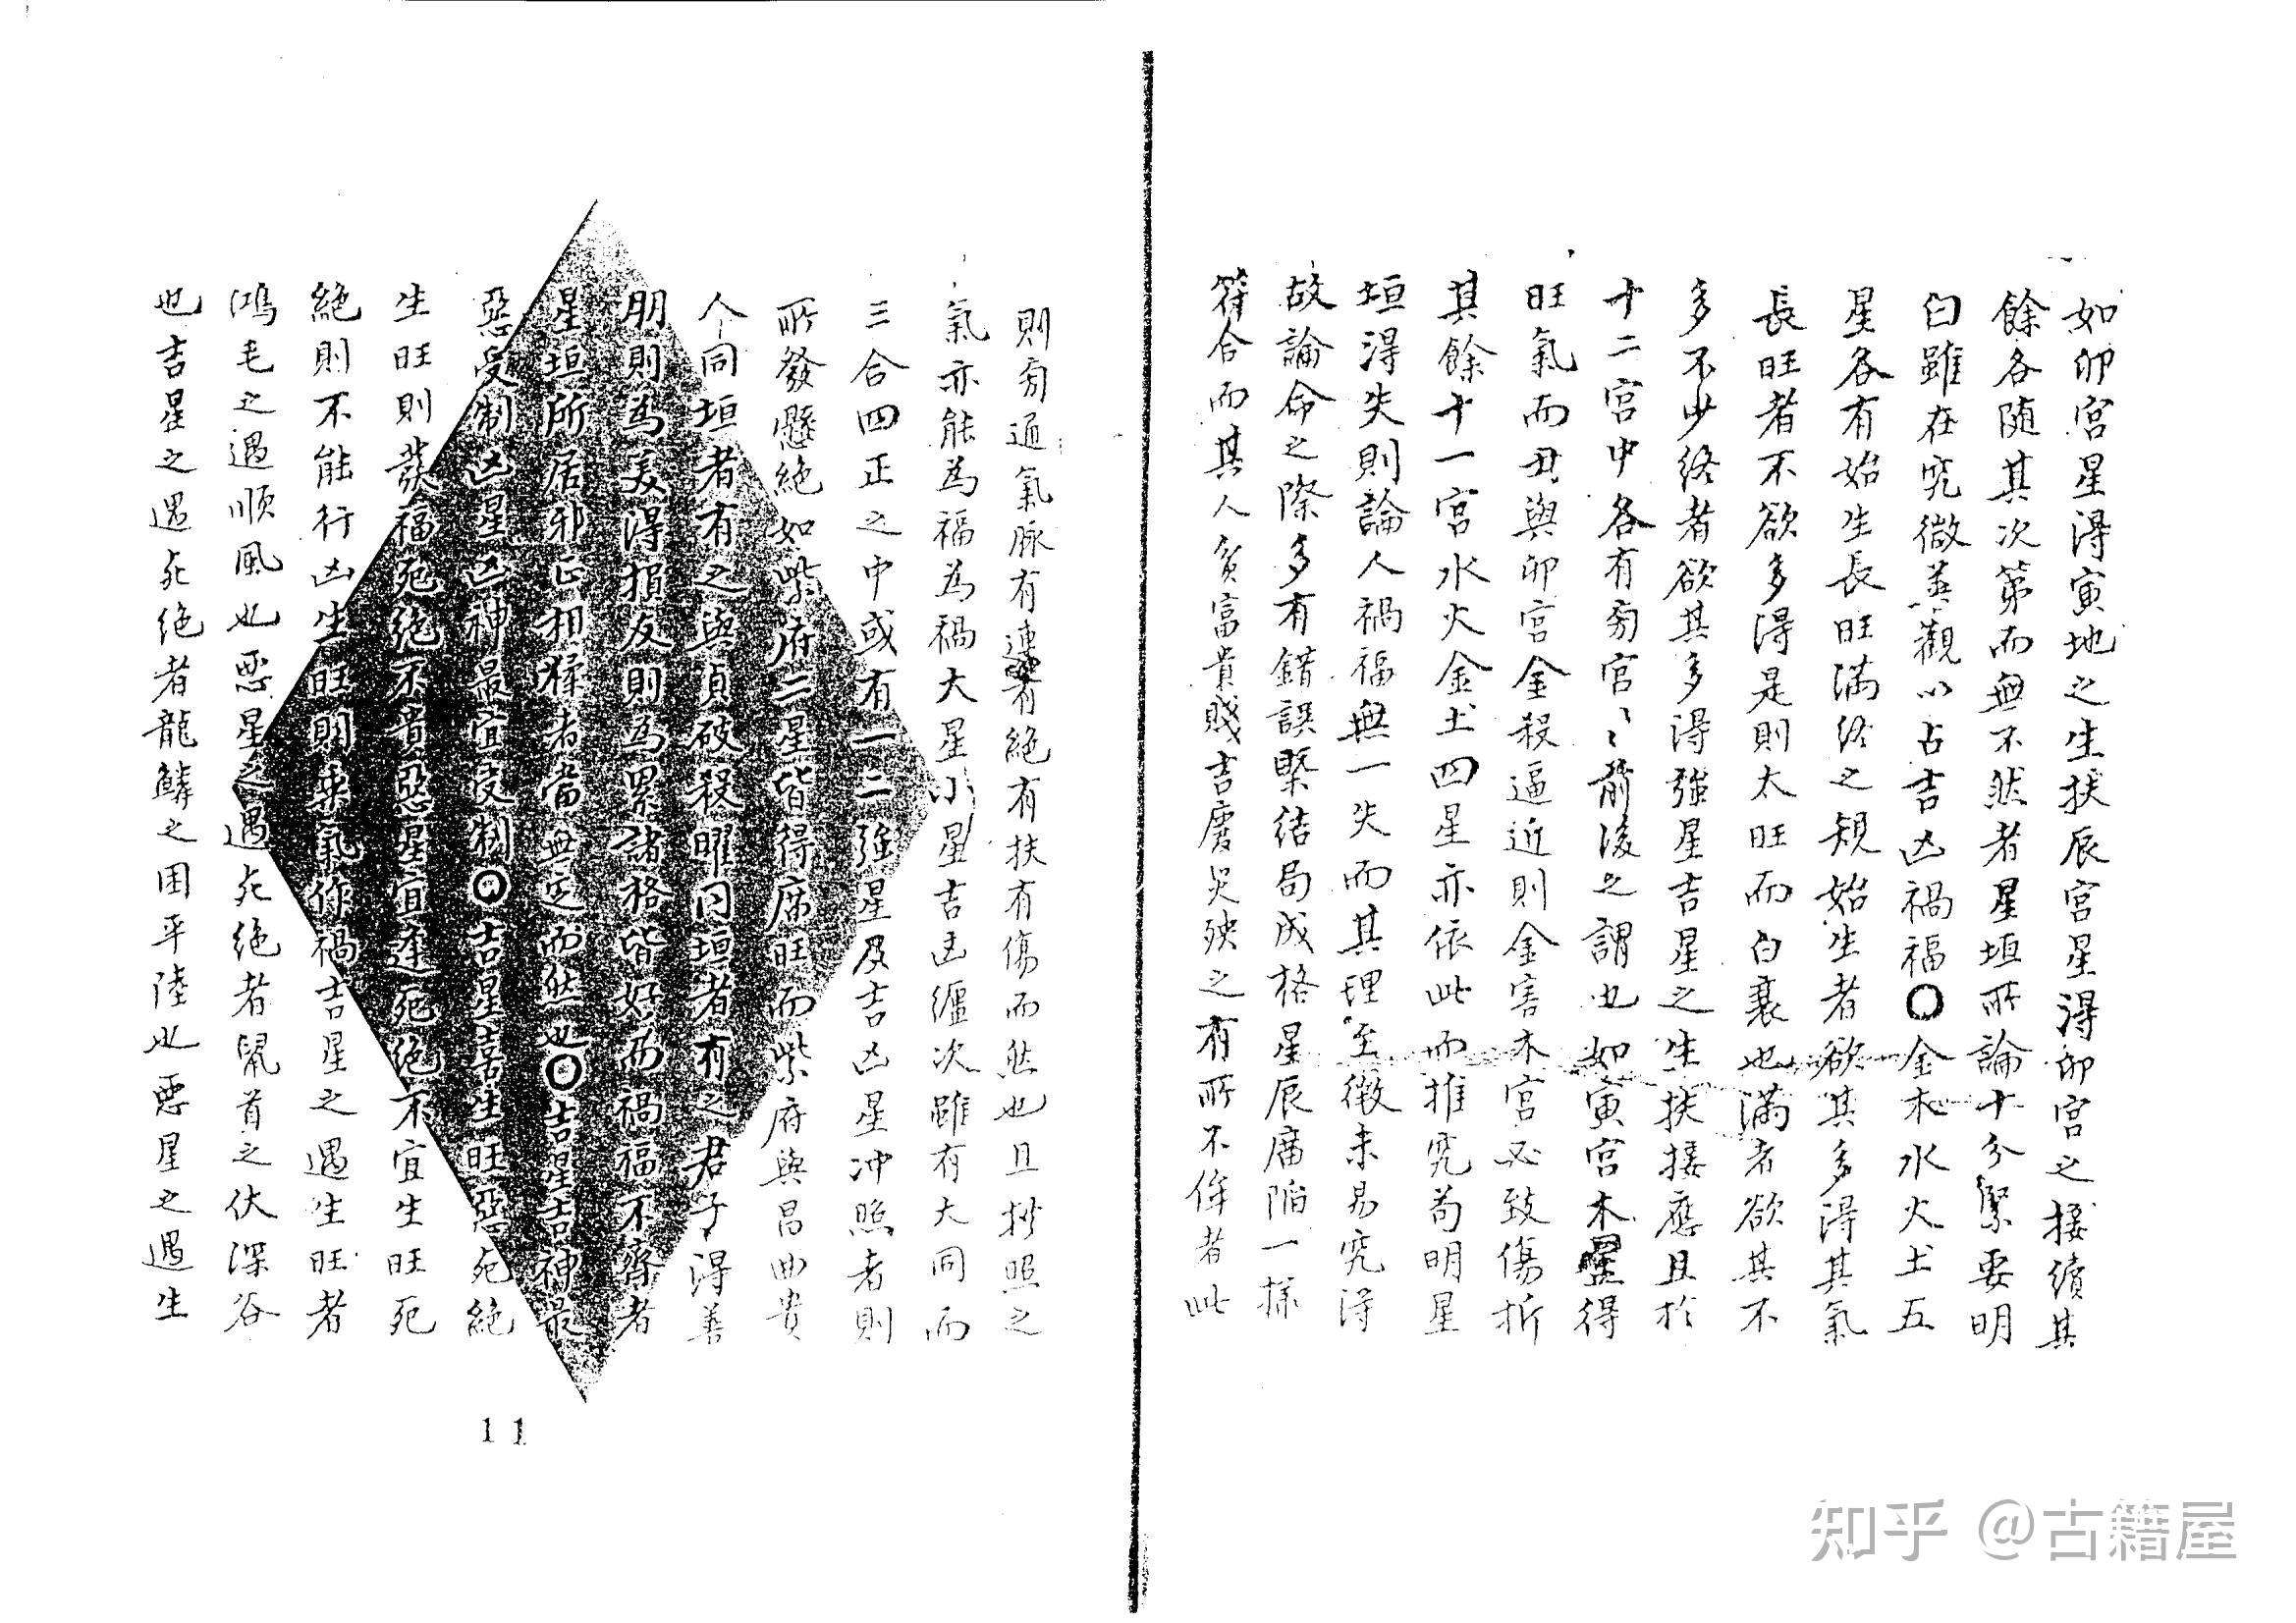 如卯宮星得寅地之生扶辰宮星得卯宮之接續其
餘各随其次第而無不然者星垣所論十分緊要明
白雖在究微並觀以占吉凶禍福○金木水火土五
星各有始生長旺滿終之規始生者欲其多得其氣
長旺者不欲多得是則太旺而自衰也滿者欲其不
多不少終者欲其多得強星吉星之生扶接應且於
十二宮中各有旁宮〻〻前後之謂也如寅宮木星得
旺氣而丑與卯宮金殺逼近則金害木宮必致傷折
其餘十一宮水火金土四星亦依此而推究苟明星
垣得失則論人禍福無一失而其理至微未易究得
故論命之際多有錯誤緊結局成格星辰廟陷一様
符合而其人貧富貴賤吉慶災殃之有所不侔者此
則旁通氣脉有連有絕有扶有傷而然也且抄照之
氣亦能為福為禍大星小星吉凶纏次雖有大同而
三合四正之中或有一二強星及吉凶星冲照者則
所發懸絕如紫府二星皆得廟旺而紫府與昌曲貴
个同垣者有之與貞破殺曜同垣者有之君子得善
朋則為美得損友則為累諸格皆好而禍福不齊者
星垣所居邪正相猱者當無定而然也○吉星吉神最
惡受制凶星凶神最宜受制○吉星喜生旺惡死絕
生旺則發福死絕不貴惡星宜逢死絕不宜生旺死
絕則不能行凶生旺則乗氣作禍吉星之遇生旺者
鴻毛之遇順風也惡星之遇死绝者鼠首之伏深谷
也吉星之遇死绝者龍鱗之困平陸也惡星之遇生
11
知乎 @古籍屋